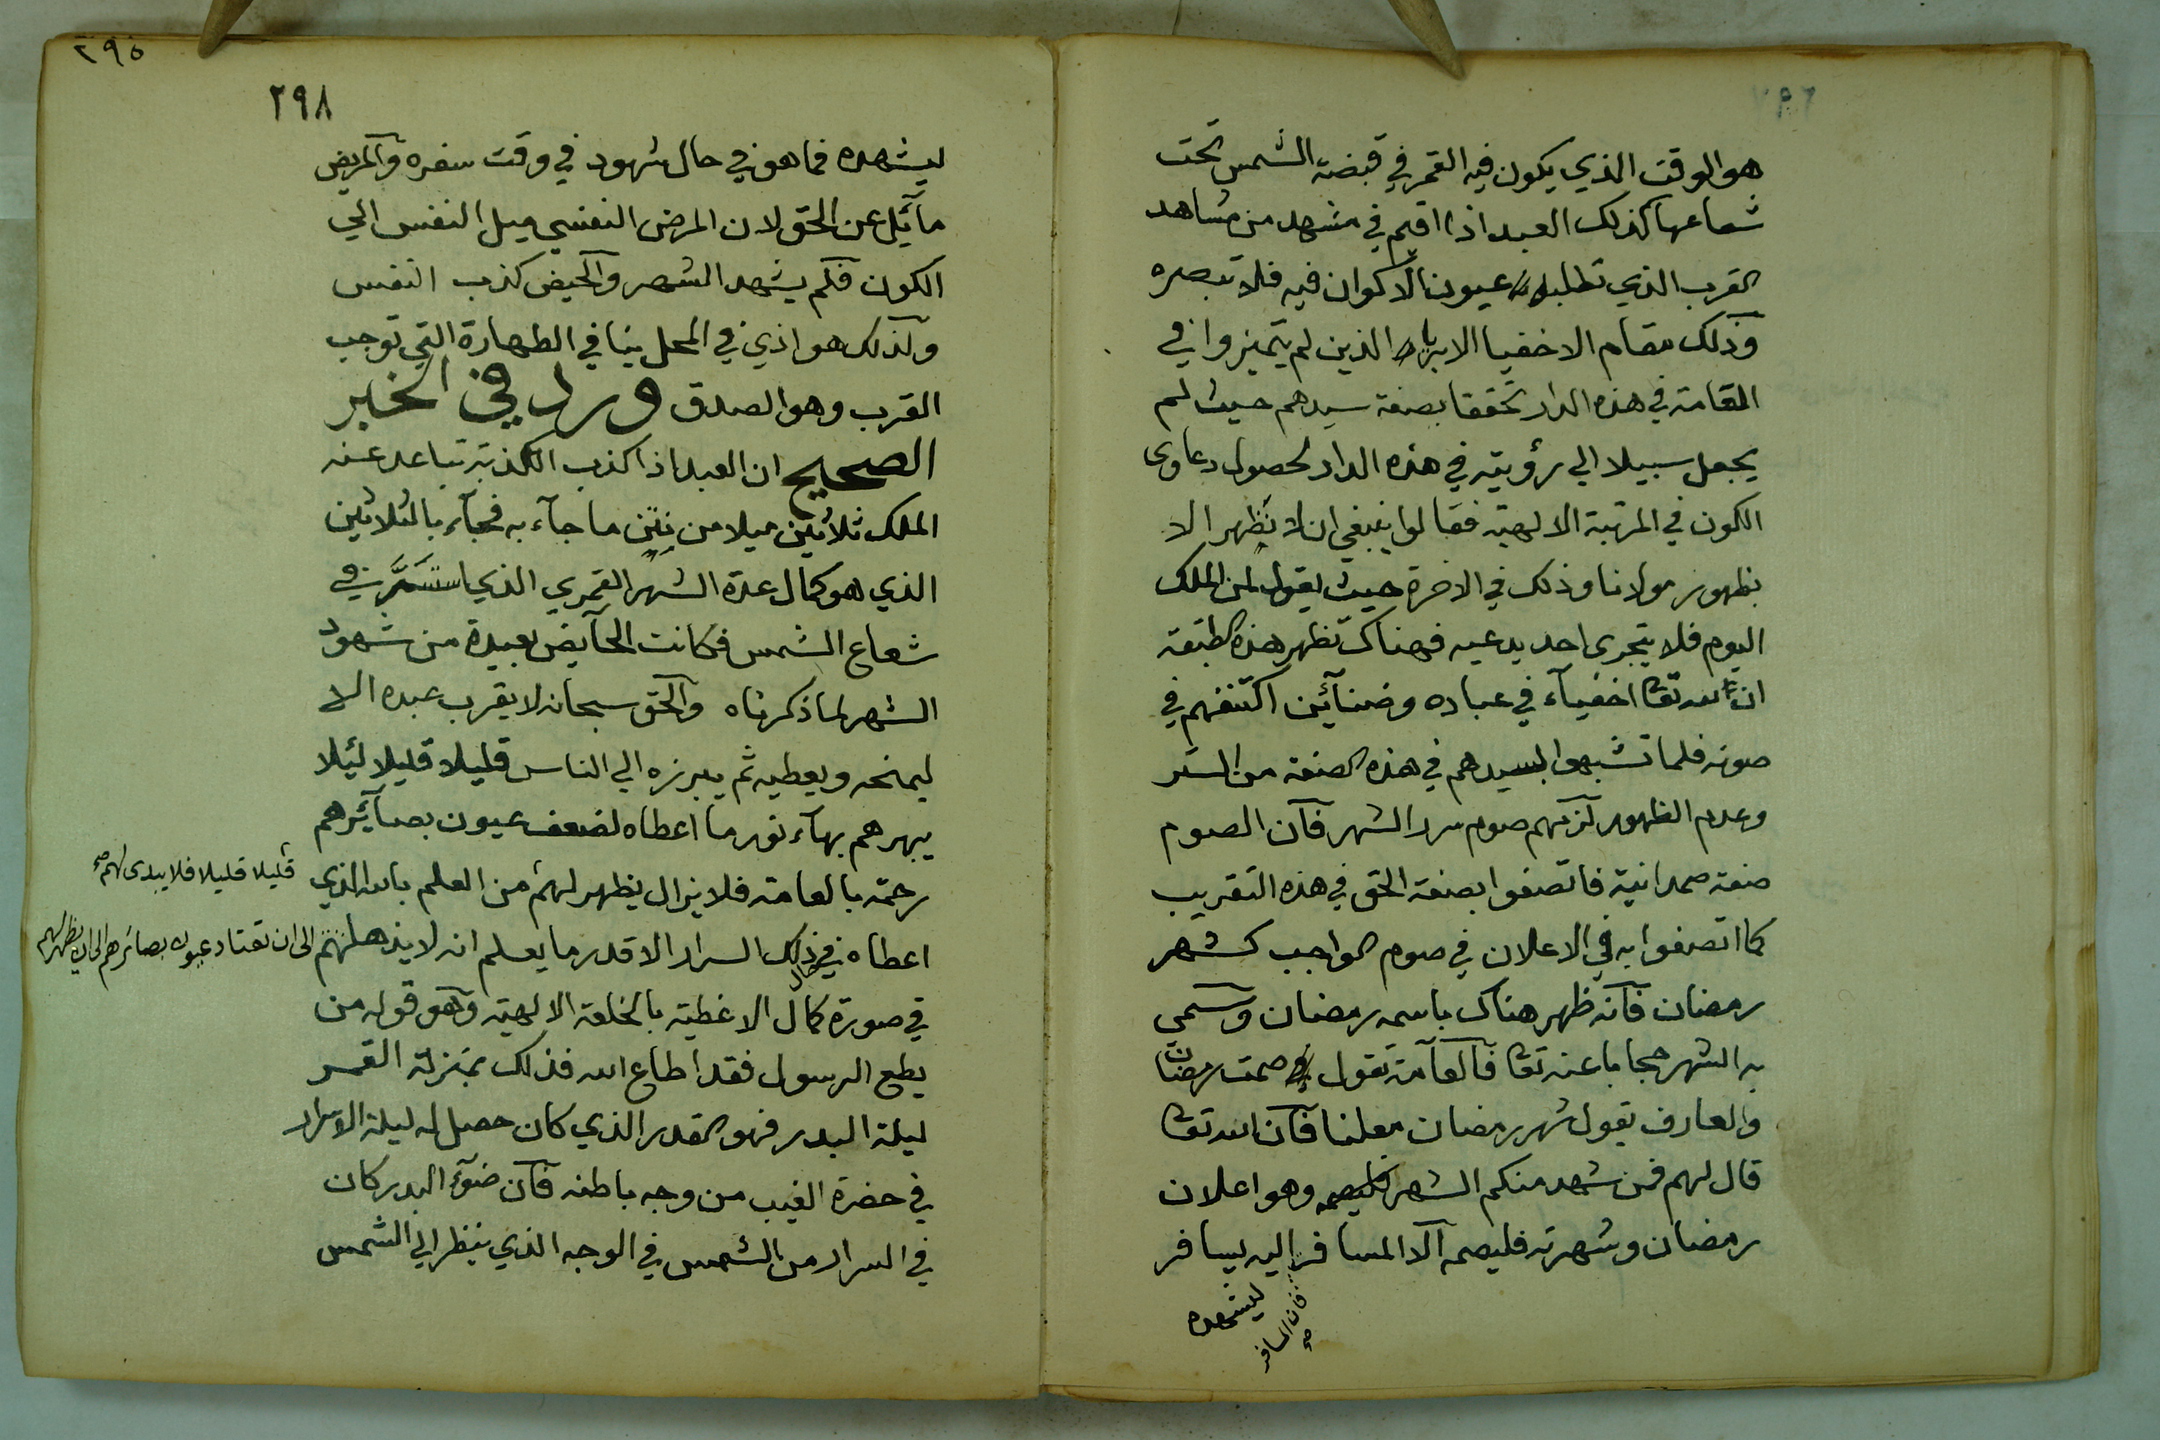 هو الوقت الذي يكون فيه القمر في قبضة الشمس تحت
شعاعها كذلك العبد اذا اقيم في مشهد من مشاهد
القرب الذي تطلبه عيون الاكوان فيه فلا تبصره
وذلك مقام الاخفيا الابرياء الذين لم يتميزوا في
المقامة في هذه الدار تحققا بصفة سيدهم حيث لم
يجعل سبيلا الي رؤيته في هذه الدار لحصول دعاوى
الكون في المرتبة الالهية فقالوا ينبغي ان لا نظهر الا
بظهور مولانا وذلك في الاخرة حيث يقول لمن الملك
اليوم فلا يتجرى احد يدعيه فهناك تظهر هذه الطبقة
ان لله تعا اخفيآء في عباده وضنآئن اكتنفهم في
صونه فلما تشبهوا بسيدهم في هذه الصفة من الستر
وعدم الظهور لزمهم صوم سرر الشهر فان الصوم
صفة صمدانية فاتصفوا بصفة الحق في هذه التقريب
كما اتصفوا به في الاعلان في صوم الواجب كشهر
رمضان فانه ظهر هناك باسمه رمضان وسمي
به الشهر حجابا عنه تعا فالعآمة تقول صمت رمضان
والعارف يقول شهر رمضان معلنا فان الله تعا
قال لهم فمن شهد منكم الشهر فليصمه وهو اعلان
رمضان وشهرته فليصمه الا المسافر اليه يسافر
فان المسافر صح
ليشهده
٢٩٥
٢٩٨
ليشهده فما هو في حال شهود في وقت سفره والمريض
مآئل عن الحق لان المرض النفسي ميل النفس الي
الكون فلم يشهد الشهر والحيض كذب النفس
ولذلك هو اذي في المحل ينافي الطهارة التي توجب
القرب وهو الصدق ورد في الخبر
الصحيح ان العبد اذا كذب الكذبة تباعد عنه
الملك ثلاثين ميلا من نتن ما جآء به فجآء بالثلاثين
الذي هو كمال عدة الشهر القمري الذي استسر في
شعاع الشمس فكانت الحآيض بعيدة من شهود
الشهر لما ذكرناه والحق سبحانه لا يقرب عبده الا
ليمنحه ويعطيه ثم يبرزه الي الناس قليلا قليلا ليئلا
يبهرهم بهآء نور ما اعطاه لضعف عيون بصآئرهم
رحمة بالعامة فلا يزال يظهر لهم من العلم بالله الذي
قليلا قليلا فلا يبدى لهم صح
اعطاه في ذلك السرار الا قدر ما يعلم انه لا يذهلهم
الى ان تعتاد عيون بصائرهم الى ان يظهر لهم
في صورة كمال الاعطية بالخلعة الالهية وهو قوله من
يطع الرسول فقد اطاع الله فذلك بمنزلة القمر
ليلة البدر فهو القدر الذي كان حصل له ليلة السرار
في حضرة الغيب من وجه باطنه فان ضوء البدر كان
في السرار من الشمس في الوجه الذي ينظر الي الشمس